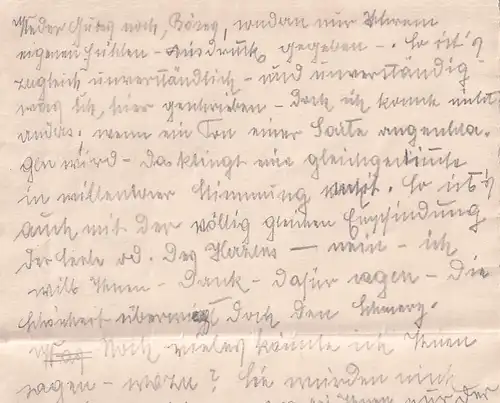 Weder Gutes noch Böses, sondern nur Ihrem
eigenen Fühlen – Ausdruck gegeben –. So ist's
zugleich unverständlich – und unverständig –
was ich hier geschrieben – doch ich konnte nicht
anders. wenn ein Ton einer Saite angeschla-
gen wird – da klingt eine gleichgestimmte
in mittönender Stimmung mit. So ist's
auch mit der völlig gleichen Empfindung
der Seele od. des Herzens — nein – ich
will Ihnen – Dank – dafür sagen – die
Schönheit überwiegt doch den Schmerz.
Noch vieles könnte ich Ihnen
sagen – wozu? Sie würden mich
Ihnen nur der